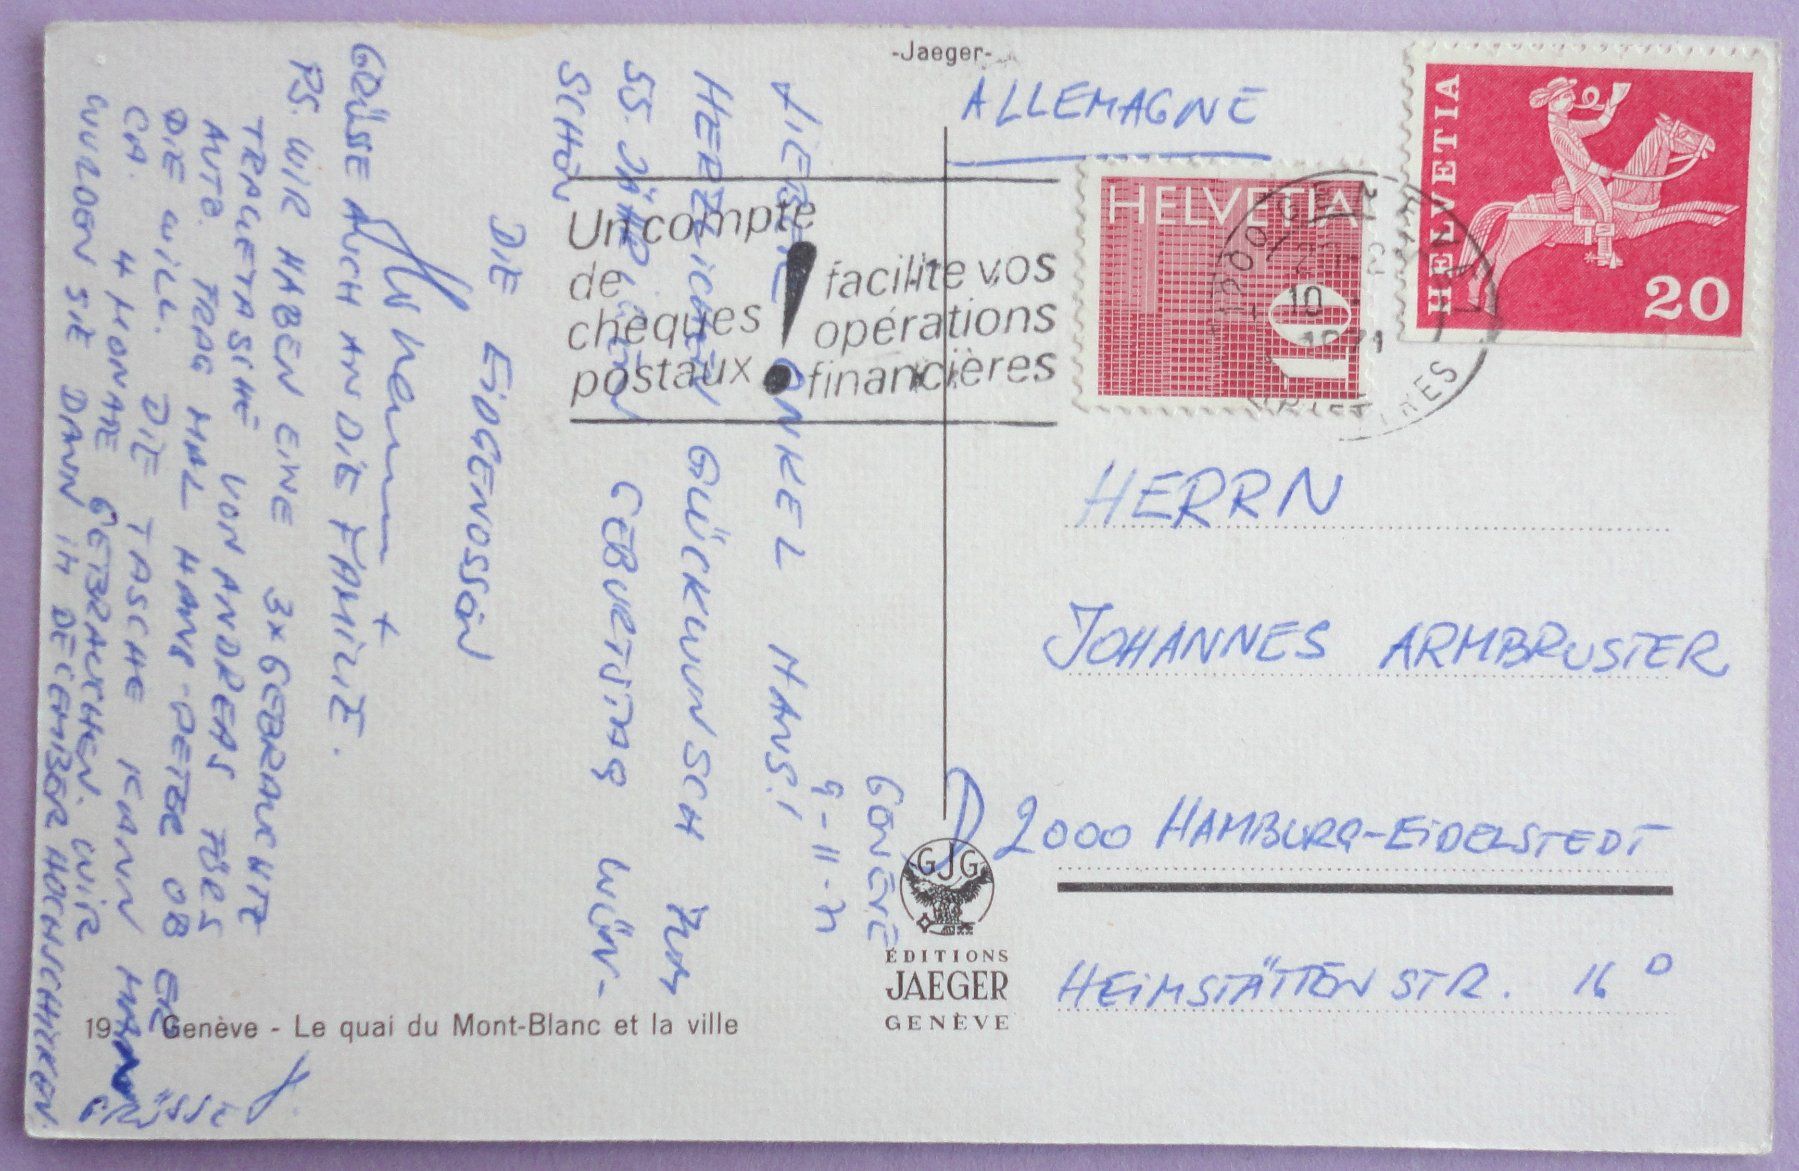 -Jaeger-
ALLEMAGNE
HELVETIA
20
HELVETIA
10
Un compte
de
chèques
postaux
!
facilite vos
opérations
financières
HERRN
JOHANNES ARMBRUSTER
D 2000 HAMBURG-EIDELSTEDT
HEIMSTÄTTEN STR. 16 D
GENÈVE
9-11-71
LIEBER ONKEL HANS!
HERZLICHEN GLÜCKWUNSCH ZUM
55. JÄHRIGEN GEBURTSTAG WÜN-
SCHEN
DIE EIDGENOSSEN
GRÜSSE AUCH AN DIE FAMILIE.
PS. WIR HABEN EINE 3x GEBRAUCHTE
TRAGETASCHE VON ANDREAS FÜRS
AUTO. FRAG MAL HANS-PETER OB ER
DIE WILL. DIE TASCHE KANN MAN
CA. 4 MONATE GEBRAUCHEN. WIR
WÜRDEN SIE DANN IM DEZEMBER HOCHSCHICKEN.
GRÜSSE
GJG
ÉDITIONS
JAEGER
GENÈVE
19 Genève - Le quai du Mont-Blanc et la ville